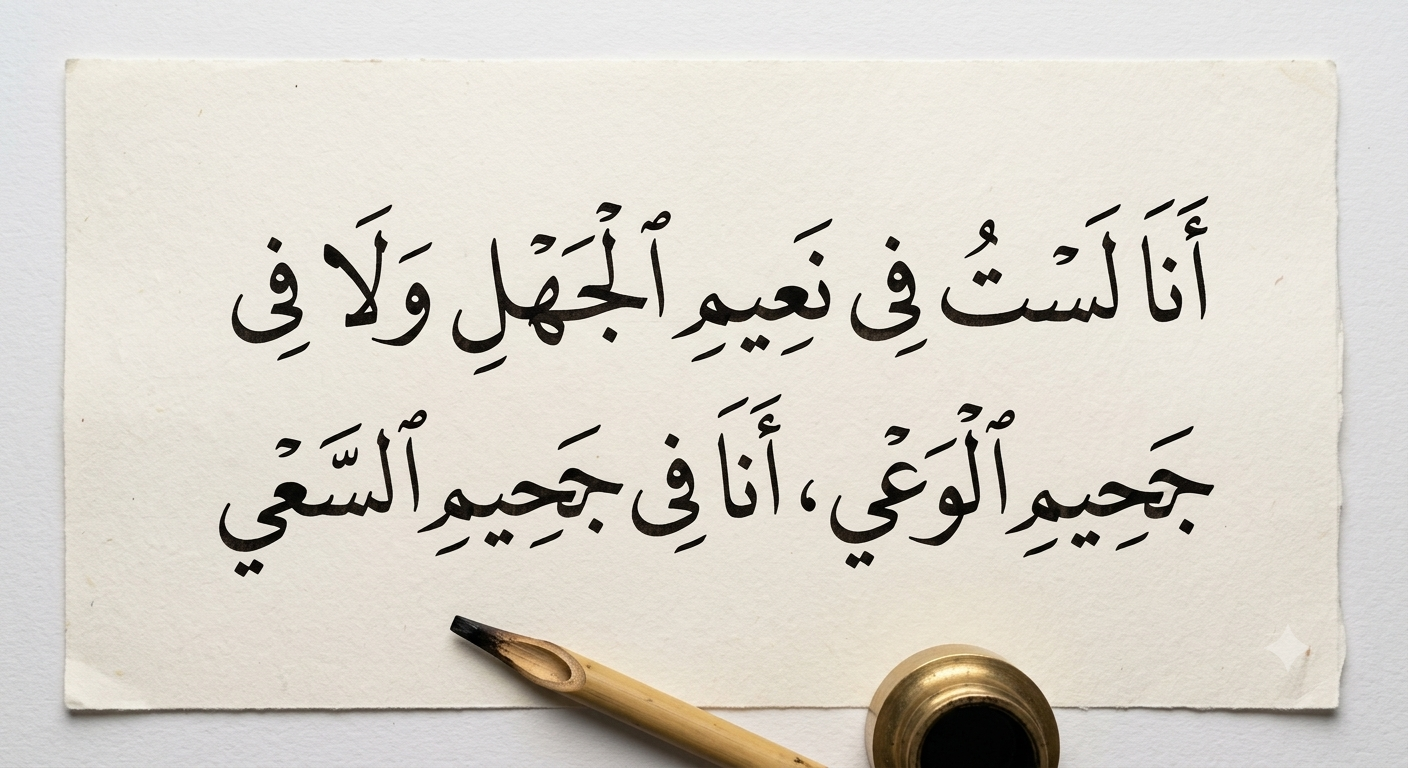 أَنَا لَسْتُ فِى نَعِيمِ ٱلْجَهْلِ وَلَا فِى
جَحِيمِ ٱلْوَعْيِ، أَنَا فِى جَحِيمِ ٱلسَّعْيِ